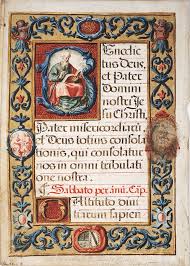 Benedic
tus Deus,
et Pater
Domini
nostri Je
su Christi,
Pater misericordiarū
et Deus totius consola
tionis, qui consolatur
nos in omni tribulati
one nostra.
Sabbato per annū. Cap.
O Altitudo divi
tiarum sapien